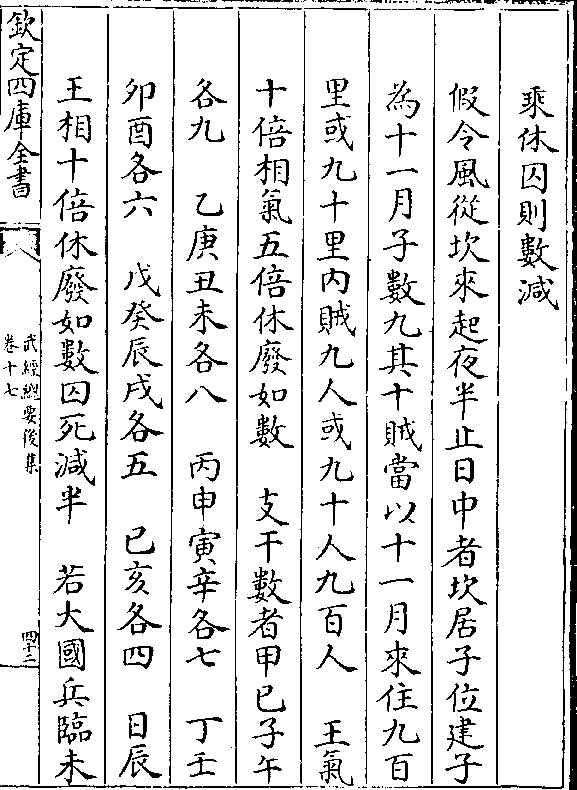 乘休囚則數減
假令風從坎來起夜半止日中者坎居子位建子
為十一月子數九其十賊當以十一月來住九百
里或九十里內賊九人或九十人九百人　王氣
十倍相氣五倍休廢如數　支干數者甲已子午
各九　乙庚丑未各八　丙申寅辛各七　丁壬
卯酉各六　戊癸辰戌各五　已亥各四　日辰
王相十倍休廢如數囚死減半　若大國兵臨未
欽定四庫全書
武經總要後集
卷十七
四十三